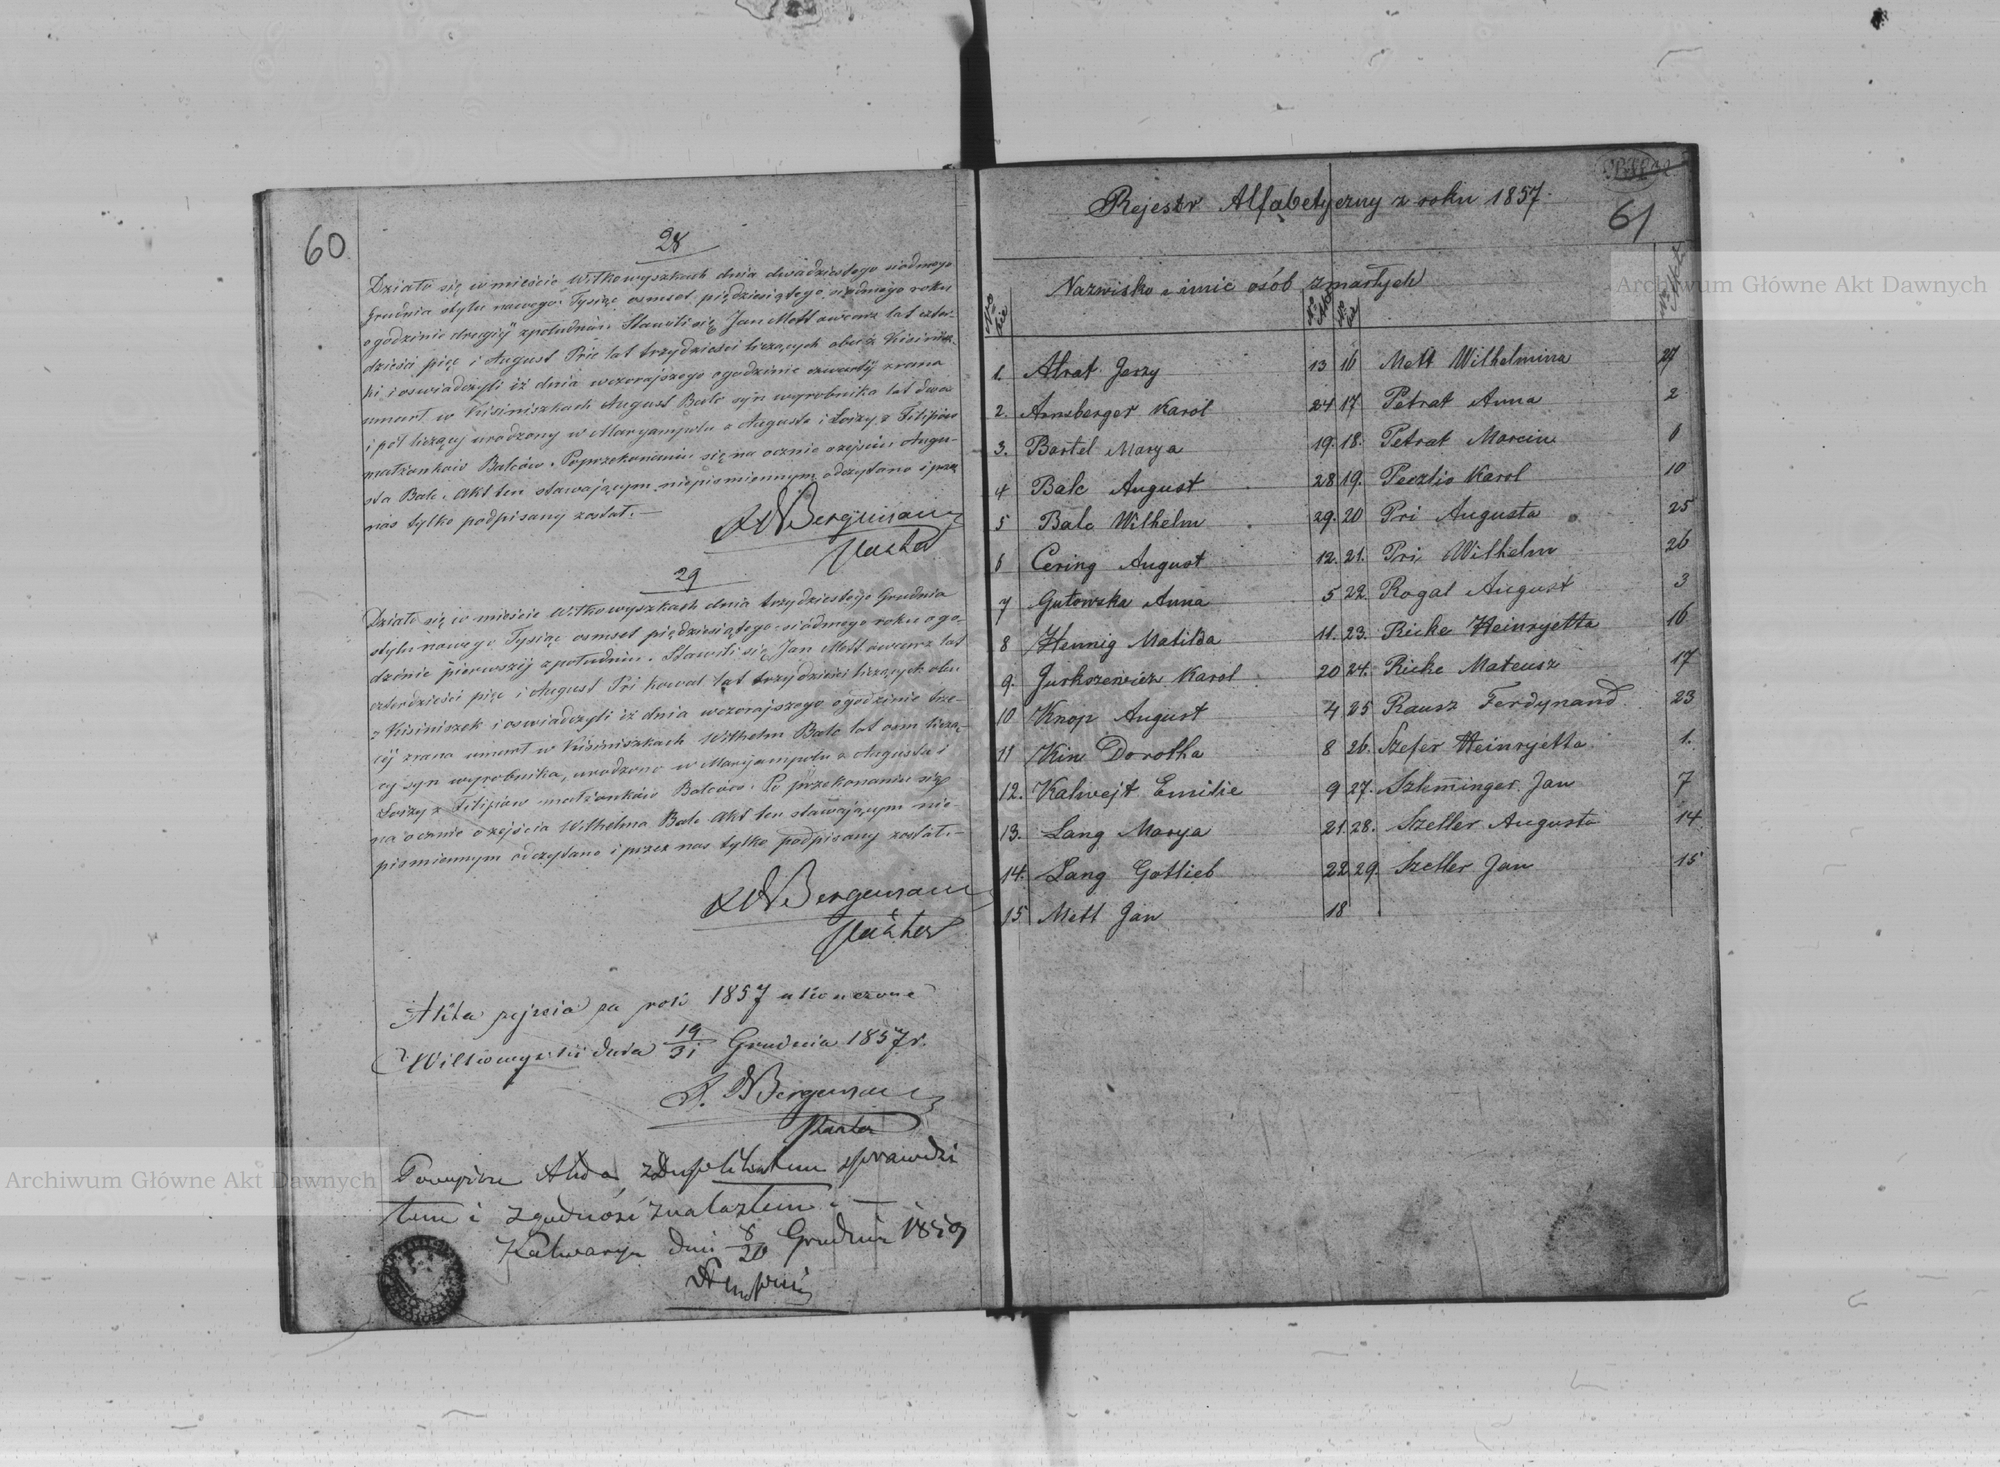 60
28
Działo się w mieście Wiłkowyszkach dnia dwudziestego siódmego
Grudnia stylu nowego Tysiąc osmset pięćdziesiątego siódmego roku
o godzinie drugiéj z południa. Stawili się Jan Mett owczarz lat czter-
dzieści pięć i August Prie lat trzydzieści liczących obaj z Kisinisz-
ki, i oswiadczyli iż dnia wczorajszego o godzinie czwartéj zrana
umarł w Kisiniszkach August Balc syn wyrobnika lat dwa
i pół liczący urodzony w Maryampolu z Augusta i Loizy z Filipów
małżonków Balców. Po przekonaniu się na ocznie o zejściu Augu-
sta Balc. Akt ten stawającym niepismiennym odczytano i prze
nas tylko podpisany został.—
Bergemann
Pastor
29
Działo się w mieście Wiłkowyszkach dnia trzydziestego Grudnia
stylu nowego Tysiąc osmset pięćdziesiątego siódmego roku o go-
dzinie pierwszéj z południa. Stawili się Jan Mett owczarz lat
czterdzieści pięć i August Pri kowal lat trzydzieści liczących obu
z Kisiniszek i oswiadczyli iż dnia wczorajszego o godzinie trze-
ciéj zrana umarł w Kisiniszkach Wilhelm Balc lat osm liczą-
cy syn wyrobnika, urodzono w Maryampolu z Augusta i
Loizy z Filipów małżonków Balców. Po przekonaniu się
na ocznie o zejścia Wilhelma Balc Akt ten stawającym nie-
pismiennym odczytano i przez nas tylko podpisany został.—
Bergemann
Pastor
Akta zejścia za rok 1857 ukończone
Wiłkowyszki dnia 19/31 Grudnia 1857 r.
Bergemann
Pastor
Powyższe Akta z duplikatem sprawdzi
łem i zgodność znalazłem.—
Kalwarya dnia 8/20 Grudnia 1859
61
Rejestr Alfabetyczny z roku 1857.
Nazwisko i imie osób zmarłych
1. Atrat Jerzy 13 16 Mett Wilhelmina 27
2. Arnsberger Karol 24 17 Petrat Anna 2
3. Bartel Marya 19. 18. Petrat Marcin 6
4 Balc August 28 19. Pecztio Karol 10
5 Balc Wilhelm 29. 20 Pri Augusta 25
6 Cering August 12. 21. Pri Wilhelm 26
7 Gutowska Anna 5 22. Rogal August 3
8 Hennig Matilda 11. 23. Ricke Heinryetta 16
9. Jurkszewicz Karol 20 24. Ricke Mateusz 17
10 Knop August 4 25 Rausz Ferdynand 23
11 Kin Dorotha 8 26. Szefer Heinryetta 1.
12. Kalwejt Emilie 9 27. Szleminger Jan 7
13. Lang Marya 21. 28. Szeller Augusta 14
14. Lang Gotlieb 22 29. Szeller Jan 15
15. Mett Jan 18
Archiwum Główne Akt Dawnych
Archiwum Główne Akt Dawnych